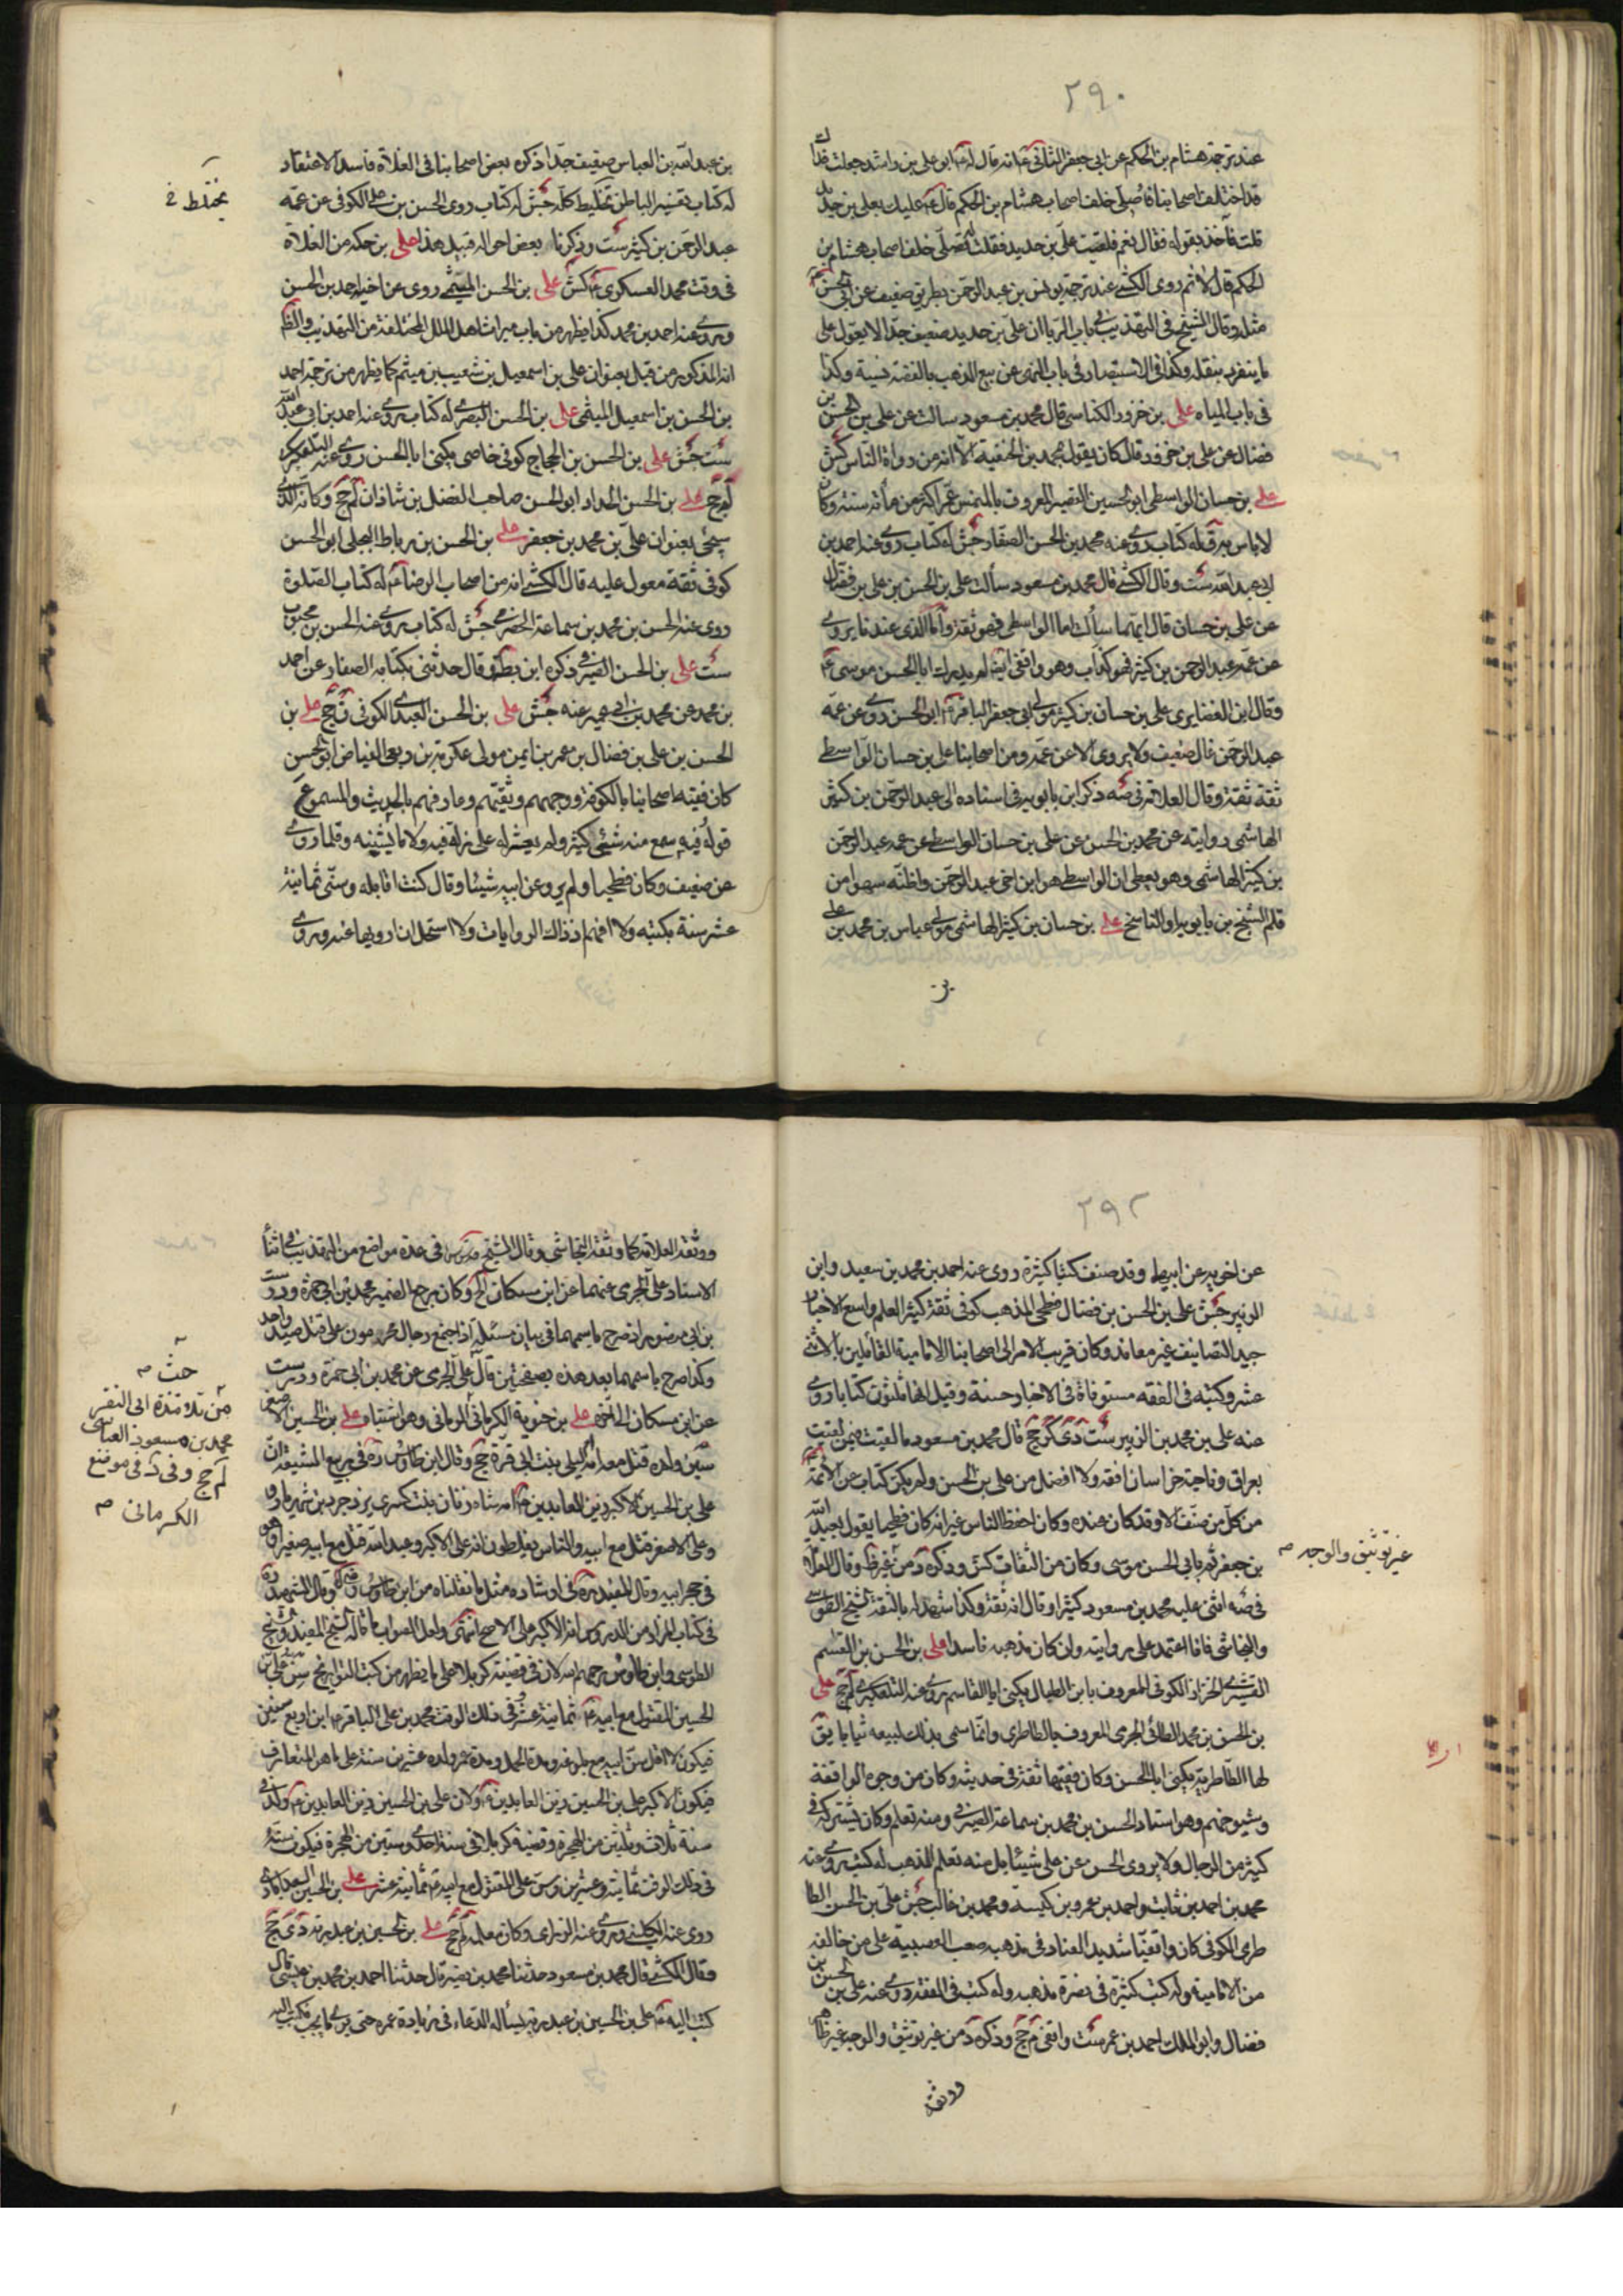 ٢٩٠
عند ترجمة هشام بن الحكم عن ابي جعفر الثاني انه قال له ابو علي بن راشد جعلت فداك
قد اختلف اصحابنا فاصلي خلف اصحاب هشام بن الحكم قال عليك بعلي بن حديد
قلت فآخذ بقوله فقال نعم فلقيت علي بن حديد فقلت نصلي خلف اصحاب هشام بن
الحكم قال لا ثم روى الكشي عند ترجمة يونس بن عبد الرحمن بطريق ضعيف عن ابي الحسن
مثله وقال الشيخ في التهذيب في باب الربا ان علي بن حديد ضعيف جدا لا يعول على
ما ينفرد بنقله وكذا في الاستبصار في باب النهي عن بيع الذهب بالفضة نسية وكذا
في باب المياه علي بن خزور الكناسي قال محمد بن مسعود سالت عن علي بن الحسن بن
فضال عن علي بن خزور قال كان يقول بمحمد بن الحنفية الا انه من رواة الناس كش
علي بن حسان الواسطي ابو الحسين القصير المعروف بالمنمس عمر اكثر من مائة سنة وكان
لا باس به له كتاب روى عنه محمد بن الحسن الصفار جش له كتاب روى عنه احمد بن
ابي عبد الله ست وقال الكشي قال محمد بن مسعود سألت علي بن الحسن بن علي بن فضال
عن علي بن حسان قال ايهما سألت اما الواسطي فهو ثقة واما الذي عندنا يروي
عن عمه عبد الرحمن بن كثير فهو كذاب وهو واقفي ايضا لم يدرك ابا الحسن موسى
وقال ابن الغضايري علي بن حسان بن كثير مولى ابي جعفر الباقر ابو الحسن روى عن عمه
عبد الرحمن غال ضعيف ولا يروي الا عن عمه ومن اصحابنا علي بن حسان الواسطي
ثقة ثقة وقال العلامة في صه ذكر ابن بابويه في اسناده الى عبد الرحمن بن كثير
الهاشمي روايته عن محمد بن الحسن عن علي بن حسان الواسطي عن عمه عبد الرحمن
بن كثير الهاشمي وهو يعطي ان الواسطي هو ابن اخي عبد الرحمن واظنه سهوا من
قلم الشيخ بن بابويه او الناسخ علي بن حسان بن كثير الهاشمي مولى عباس بن محمد بن علي
بن
بن عبد الله بن العباس ضعيف جدا ذكره بعض اصحابنا في الغلاة فاسد الاعتقاد
له كتاب تفسير الباطن تخليط كله جش له كتاب روى الحسن بن علي الكوفي عن عمه
عبد الرحمن بن كثير ست وذكرنا بعض احواله قبيل هذا علي بن حسكه من الغلاة
في وقت محمد العسكري كش علي بن الحسن الميثمي روى عن اخيه احمد بن الحسن
وروى عنه احمد بن محمد كذا يظهر من باب ميراث اهل الملل المختلفة من التهذيب والظاهر
انه المذكور من قبل بعنوان علي بن اسمعيل بن شعيب بن ميثم كما يظهر من ترجمة احمد
بن الحسن بن اسمعيل الميثمي علي بن الحسن البصري له كتاب روى عنه احمد بن ابي عبد الله
ست جش علي بن الحسن بن الحجاج كوفي خاصي يكنى ابا الحسن روى عنه التلعكبري
لم جخ علي بن الحسن الحداد ابو الحسن صاحب الفضل بن شاذان لم جخ وكانه الذي
سيجئ بعنوان علي بن محمد بن جعفر علي بن الحسن بن رباط البجلي ابو الحسن
كوفي ثقة معول عليه قال الكشي انه من اصحاب الرضا له كتاب الصلوة
روى عنه الحسن بن محمد بن سماعة الحضرمي جش له كتاب روى عنه الحسن بن محبوب
ست علي بن الحسن الصيرفي ذكره ابن بطة وقال حدثني بكتابه الصفار عن احمد
بن محمد عن محمد بن ابي عمير عنه جش علي بن الحسن العبدي الكوفي ق جخ علي بن
الحسن بن علي بن فضال بن عمر بن ايمن مولى عكرمة بن ربعي الفياض ابو الحسن
كان فقيه اصحابنا بالكوفة ووجههم وثقتهم وعارفهم بالحديث والمسموع
قوله فيه سمع منه شئ كثير ولم يعثر له على زلة فيه ولا ما يشينه وقلما روى
عن ضعيف وكان فطحيا ولم يرو عن ابيه شيئا وقال كنت اقابله وسني ثمانية
عشر سنة بكتبه ولا افهم اذ ذاك الروايات ولا استحل ان ارويها عنه وروى
يختلط خ
٢٩٢
عن اخويه عن ابيهما وقد صنف كتبا كثيرة روى عنه احمد بن محمد بن سعيد وابن
الزبير جش علي بن الحسن بن فضال فطحي المذهب كوفي ثقة كثير العلم واسع الاخبار
جيد التصانيف غير معاند وكان قريب الامر الى اصحابنا الامامية القائلين بالاثني
عشر وكتبه في الفقه مستوفاة في الاخبار حسنة وقيل انها ثلثون كتابا روى
عنه علي بن محمد بن الزبير ست دي كر جخ قال محمد بن مسعود ما لقيت فيمن لقيت
بعراق وناحية خراسان افقه ولا افضل من علي بن الحسن ولم يكن كتاب عن الائمة
من كل صنف الا وقد كان عنده وكان احفظ الناس غير انه كان فطحيا يقول بعبد الله
بن جعفر ثم بابي الحسن موسى وكان من الثقات كش وذكره د من غير ظ وقال العلامة
في صه اثنى عليه محمد بن مسعود كثيرا وقال انه ثقة وكذا شهد له بالثقة الشيخ الطوسي
والنجاشي فانا اعتمد على روايته وان كان مذهبه فاسدا علي بن الحسن بن القاسم
القشيري الخزاز الكوفي المعروف بابن الطبال يكنى ابا القاسم روى عنه التلعكبري لم جخ علي
بن الحسن بن محمد الطائي الجرمي المعروف بالطاطري وانما سمي بذلك لبيعه ثيابا يق
لها الطاطرية يكنى ابا الحسن وكان فقيها ثقة في حديثه وكان من وجوه الواقفة
وشيوخهم وهو استاد الحسن بن محمد بن سماعة الصيرفي ومنه تعلم وكان يشتركه في
كثير من الرجال ولا يروي الحسن عن علي شيئا بل منه تعلم المذهب له كتب روى عنه
محمد بن احمد بن ثابت واحمد بن عمرو بن كيسبه ومحمد بن غالب جش علي بن الحسن الطا
طري الكوفي كان واقفيا شديد العناد في مذهبه صعب العصبية على من خالفه
من الامامية وله كتب كثيرة في نصرة مذهبه وله كتب في الفقه روى عنه علي بن الحسن بن
فضال وابو الملك احمد بن عمر ست واقفي م جخ وذكره د من غير توثيق والوجه غير ظاهر
غير توثيق والوجه م
ووثقه
ووثقه العلامة كما وثقه النجاشي وقال الشيخ في عدة مواضع من التهذيب في اثنا
الاسناد علي الجرمي عنهما عن ابن مسكان الخ وكان مرجع الضمير محمد بن ابي حمزة ودرست
بن ابي منصور اذ صرح باسمهما في بيان مسئلة اذا اجتمع رجال محرمون على قتل صيد واحد
وكذا صرح باسمهما بعد هذه بصفحتين قال علي الجرمي عن محمد بن ابي حمزة ودرست
عن ابن مسكان الخ علي بن الحسين الاصغر
سين ولده قتل معه امه ليلى بنت ابي قرة جخ وقال ابن طاوس في ربيع الشيعة ان
علي بن الحسين الاكبر زين العابدين امه شاه زنان بنت كسرى يزدجرد بن شهريار
وعلي الاصغر قتل مع ابيه والناس يغلطون انه علي الاكبر وعبد الله قتل مع ابيه صغيرا وهو
في حجر ابيه وقال المفيد في ارشاده مثل ما نقلناه من ابن طاوس وقال الشهيد
في كتاب المزار من الدروس انه الاكبر على الاصح انتهى ولعل الصواب ما قاله الشيخ المفيد والشيخ
الطوسي وابن طاوس رحمهم الله لان في قضية كربلا على ما يظهر من كتب التواريخ سن علي بن
الحسين المقتول مع ابيه ثمانية عشر وفي ذلك الوقت محمد بن علي الباقر ابن اربع سنين
فيكون لا اقل سن ابيه مع بلوغه ومدة الحمل ومدة عمر ولده عشرين سنة على ما هو المتعارف
فيكون الاكبر علي بن الحسين زين العابدين ولان علي بن الحسين زين العابدين ولد في
سنة ثلاث وثلثين من الهجرة وقضية كربلا في سنة احدى وستين من الهجرة فيكون سنه
في ذلك الوقت ثمانية وعشرين وسن علي المقتول مع ابيه ثمانية عشر علي بن الحسين السعدابادي
روى عنه الكليني وروى عنه الزراري وكان معلمه لم جخ علي بن الحسين بن عبد ربه دي جخ
وقال الكشي قال محمد بن مسعود حدثنا محمد بن نصير قال حدثنا احمد بن محمد بن عيسى قال
كتب اليه علي بن الحسين بن عبد ربه يسأله الدعاء في زيادة عمره حتى يرى ما يحب فكتب اليه
من تلامذة ابي النضر
محمد بن مسعود العياشي
لم جخ وفي د في موضع
الكرماني م